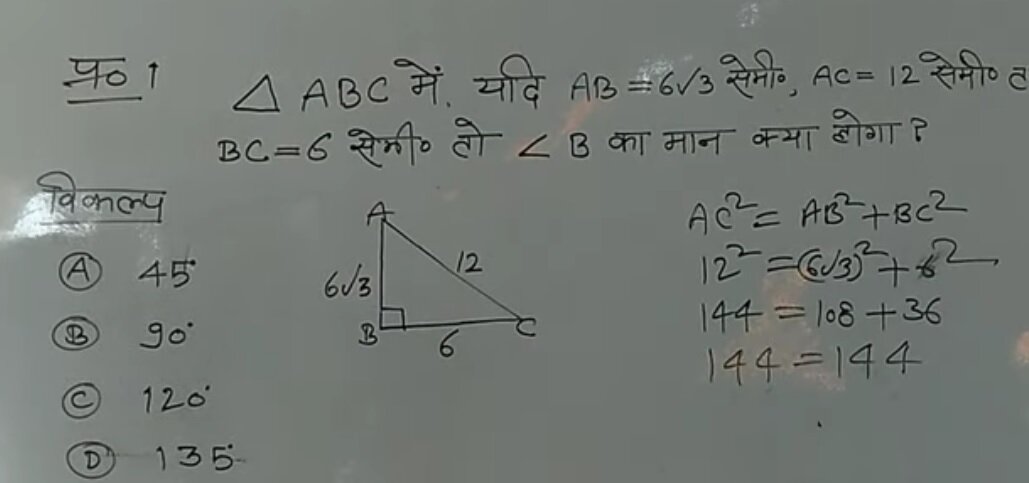 प्र० 1
△ ABC में, यदि AB = 6√3 सेमी०, AC = 12 सेमी० त
BC = 6 सेमी० तो ∠B का मान क्या होगा ?
विकल्प
Ⓐ 45°
Ⓑ 90°
Ⓒ 120°
Ⓓ 135°
A
6√3
12
B
6
C
AC² = AB² + BC²
12² = (6√3)² + 6²
144 = 108 + 36
144 = 144